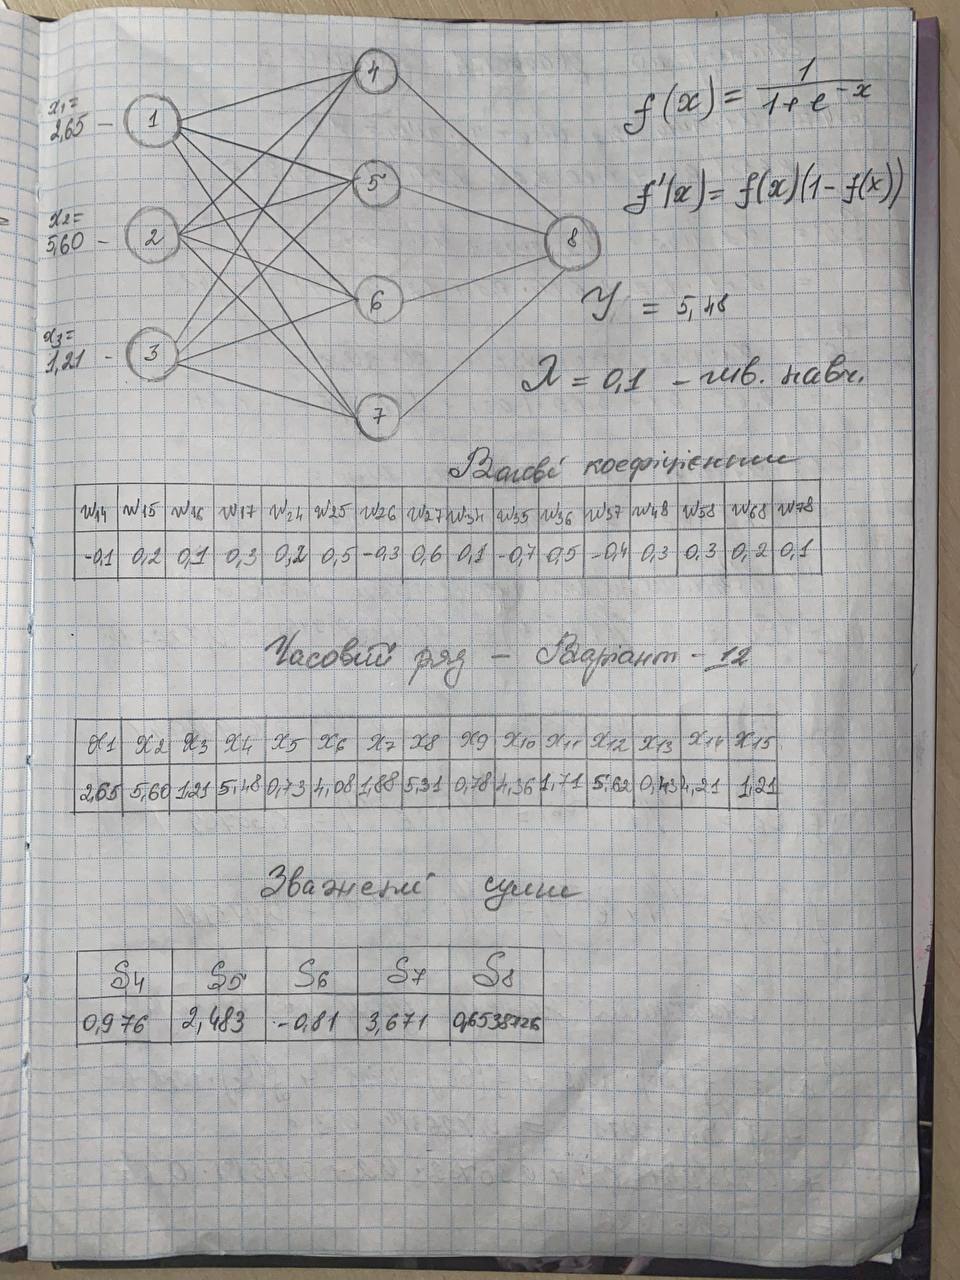 x₁=
2,65 –
1
x₂=
5,60 –
2
x₃=
1,21 –
3
4
5
6
7
8
f(x) = 1 / 1+e^-x
f'(x) = f(x)(1- f(x))
Y = 5,48
λ = 0,1 – шв. навч.
Вагові коефіцієнти
w14 w15 w16 w17 w24 w25 w26 w27 w34 w35 w36 w37 w48 w58 w68 w78
-0,1 0,2 0,1 0,3 0,2 0,5 -0,3 0,6 0,1 -0,7 0,5 -0,4 0,3 0,3 0,2 0,1
Часовий ряд – Варіант - 12
x1 x2 x3 x4 x5 x6 x7 x8 x9 x10 x11 x12 x13 x14 x15
2,65 5,60 1,21 5,48 0,73 4,08 1,88 5,31 0,78 4,36 1,71 5,62 0,43 4,21 1,21
Зважені суми
S4 S5 S6 S7 S8
0,976 2,483 -0,81 3,671 0,6538726